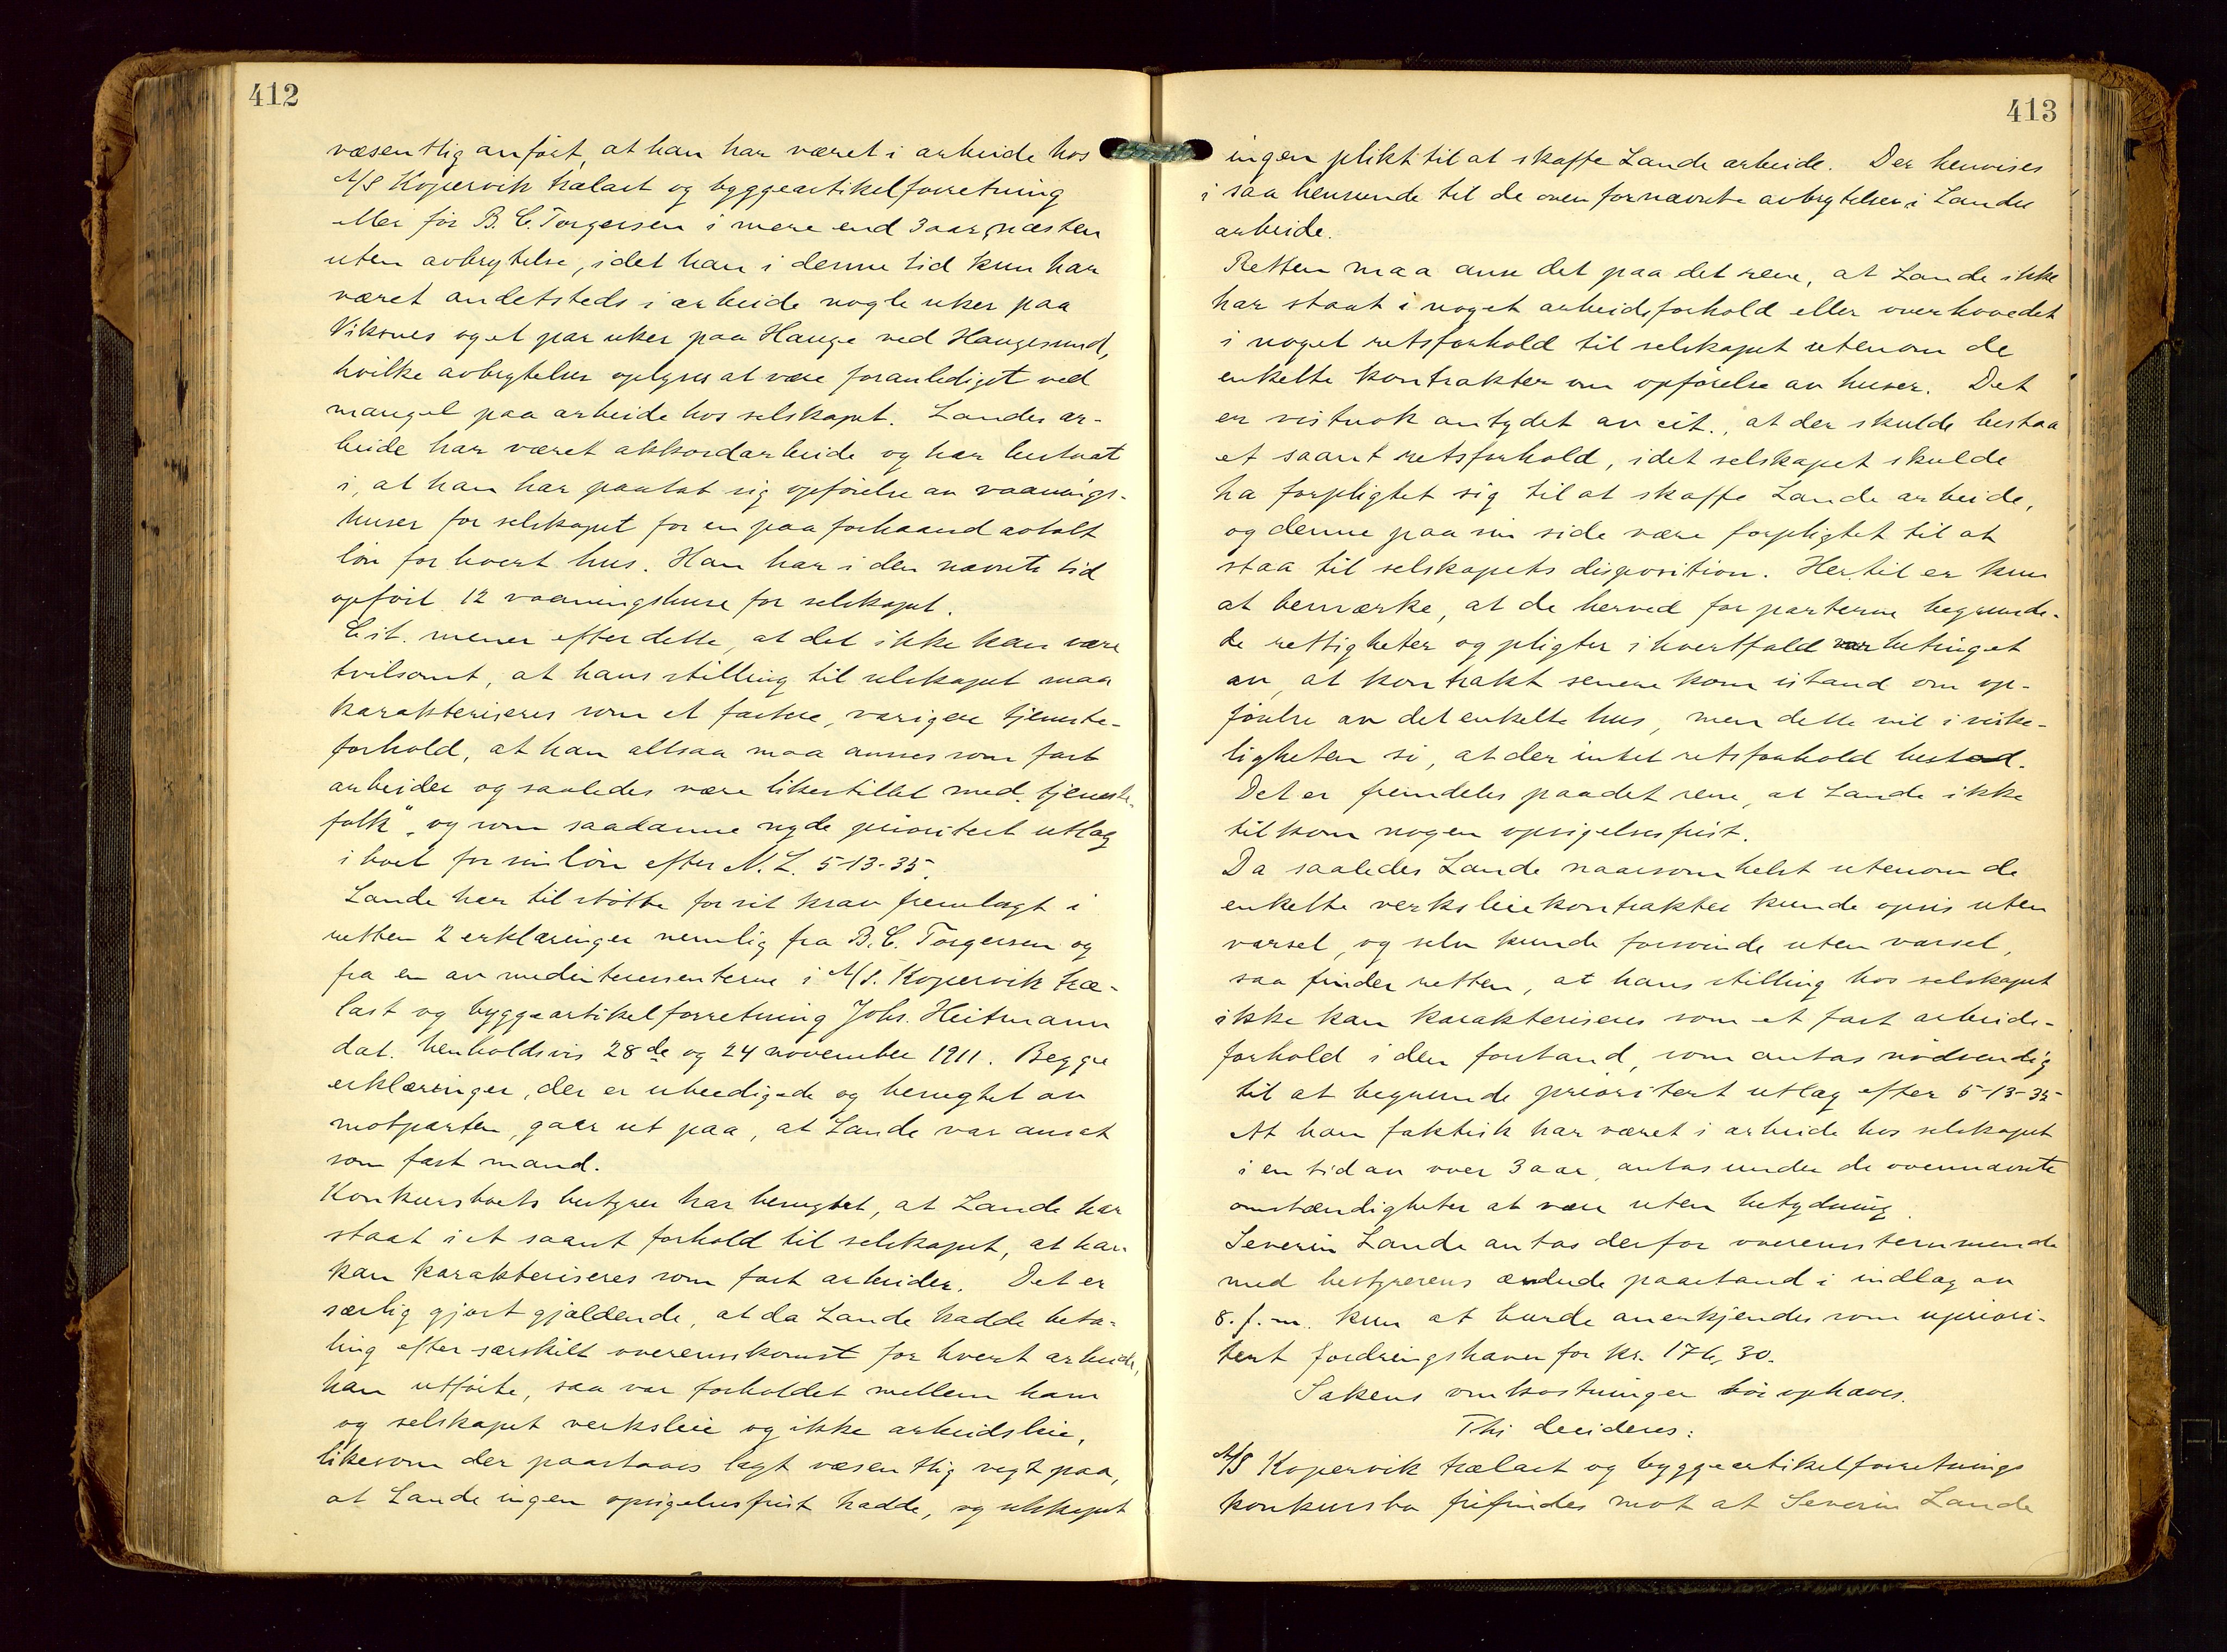 412
væsentlig anført, at han har været i arbeide hos
A/S Kopervik trælast og byggeartikelforretning
eller for B. C. Torgersen i mere end 3 aar, næsten
uten avbrytelse, idet han i denne tid kun har
været andetsteds i arbeide nogle uker paa
Viksnes og et par uker paa Hauge ved Haugesund,
hvilke avbrytelser oplyses at være foranlediget ved
mangel paa arbeide hos selskapet. Landes ar-
beide har været akkordarbeide og har bestaat
i, at han har paatat sig opførelse av vaanings-
huser for selskapet for en paa forhaand avtalt
løn for hvert hus. Han har i den nævnte tid
opført 12 vaaningshuse for selskapet.
Cit. mener efter dette, at det ikke kan være
tvilsomt, at hans stilling til selskapet maa
karakteriseres som et fastere, varigere tjeneste-
forhold, at han altsaa maa ansees som fast
arbeider og saaledes være likestillet med „tjeneste-
folk", og som saadanne nyde prioritert utlæg
i boet for sin løn efter N. L. 5-13-35.
Lande har til støtte for sit krav fremlagt i
retten 2 erklæringer nemlig fra B. C. Torgersen og
fra en av medinteressenterne i A/S. Kopervik træ-
last og byggeartikelforretning Johs. Heitmann
dat. henholdsvis 28de og 24 november 1911. Begge
erklæringer, der er ubeedigede og benegtet av
motparten, gaar ut paa, at Lande var ansat
som fast mand.
Konkursboets bestyrer har benegtet, at Lande har
staat i et saant forhold til selskapet, at han
kan karakteriseres som fast arbeider. Det er
særlig gjort gjældende, at da Lande hadde beta-
ling efter særskilt overenskomst for hvert arbeide,
han utførte, saa var forholdet mellem ham
og selskapet verksleie og ikke arbeidsleie,
likesom der paastaaes lagt væsentlig vegt paa,
at Lande ingen opsigelsesfrist hadde, og selskapet
413
ingen plikt til at skaffe Lande arbeide. Der henvises
i saa henseende til de ovenfornævnte avbrytelser i Landes
arbeide.
Retten maa anse det paa det rene, at Lande ikke
har staat i noget arbeidsforhold eller overhovedet
i noget retsforhold til selskapet utenom de
enkelte kontrakter om opførelse av huser. Det
er vistnok antydet av cit., at der skulde bestaa
et saant retsforhold, idet selskapet skulde
ha forpligtet sig til at skaffe Lande arbeide,
og denne paa sin side være forpligtet til at
staa til selskapets disposition. Hertil er kun
at bemærke, at de herved for parterne begrunde-
de rettigheter og pligter i hvertfald var betinget
av, at kontrakt senere kom istand om op-
førelse av det enkelte hus, men dette vil i virke-
ligheten si, at der intet retsforhold bestod.
Det er fremdeles paa det rene, at Lande ikke
tilkom nogen opsigelsesfrist.
Da saaledes Lande naarsomhelst utenom de
enkelte verksleiekontrakter kunde opsis uten
varsel, og selv kunde forsvinde uten varsel,
saa finder retten, at hans stilling hos selskapet
ikke kan karakteriseres som et fast arbeids-
forhold i den forstand, som antas nødvendig
til at begrunde prioritert utlæg efter 5-13-35
At han faktisk har været i arbeide hos selskapet
i en tid av over 3 aar, antas under de ovennævnte
omstændigheter at være uten betydning.
Severin Lande antas derfor overensstemmende
med bestyrerens ændrede paastand i indlæg av
8. f. m. kun at burde anerkjendes som upriori-
tert fordringshaver for kr. 176,30.
Sakens omkostninger bør ophæves.
Thi decideres:
A/S Kopervik trælast og byggeartikelforretnings
konkursbo frifindes mot at Severin Lande